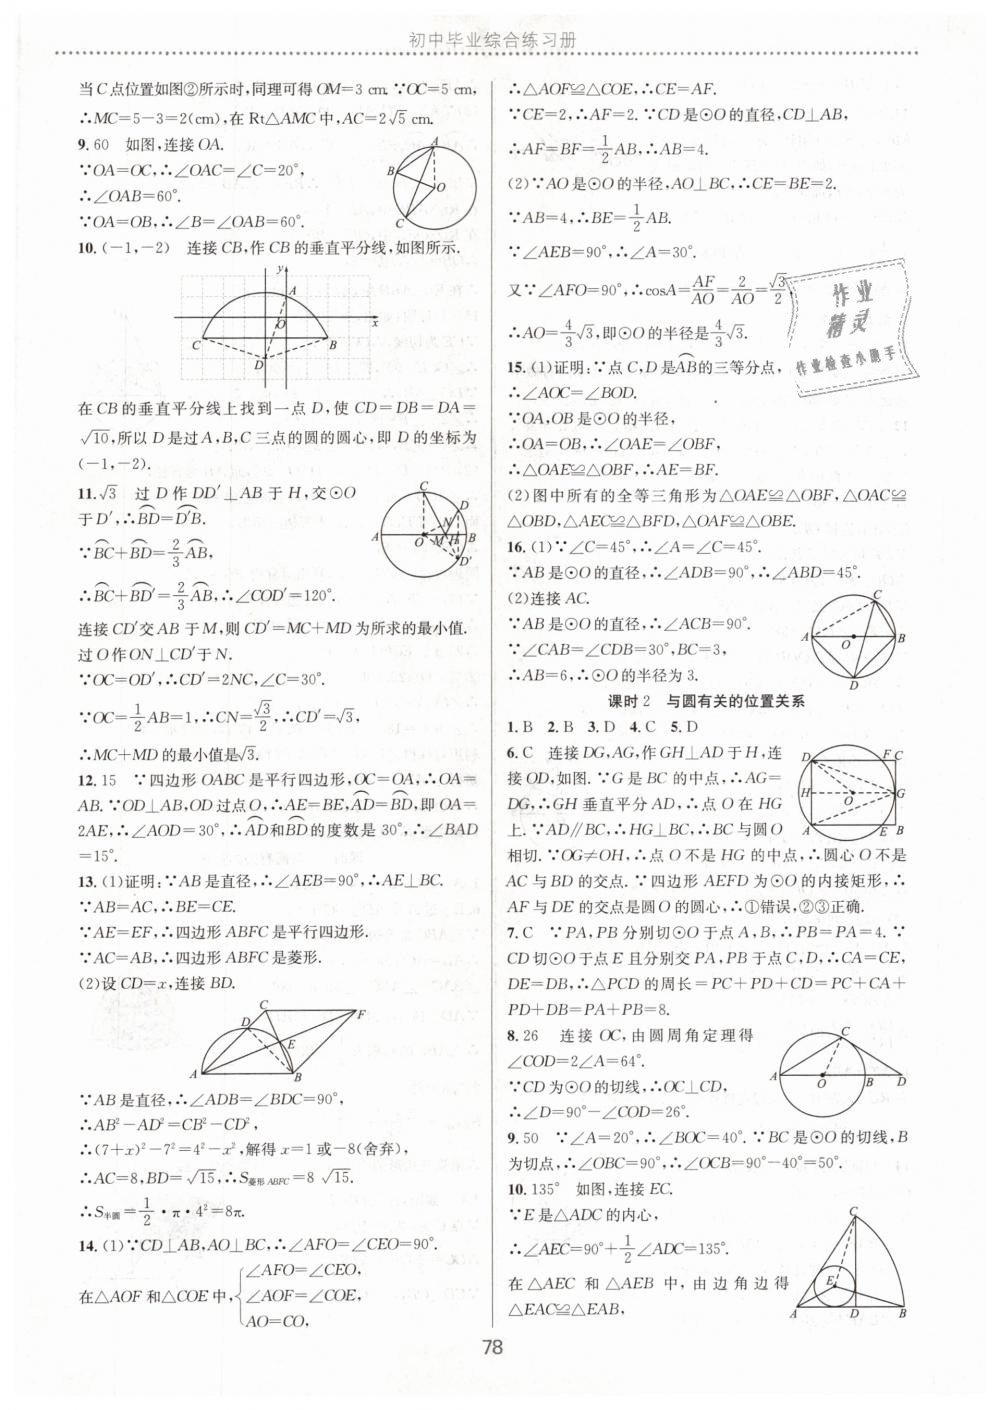 初中毕业综合练习册
当C点位置如图②所示时,同理可得OM=3 cm. ∵OC=5 cm,
∴MC=5-3=2(cm),在Rt△AMC中,AC=2√5 cm.
9. 60 如图,连接OA.
∵OA=OC,∴∠OAC=∠C=20°,
∴∠OAB=60°.
∵OA=OB,∴∠B=∠OAB=60°.
A
B
O
C
10. (-1,-2) 连接CB,作CB的垂直平分线,如图所示.
y
A
O
x
C
B
D
在CB的垂直平分线上找到一点D,使CD=DB=DA=
√10,所以D是过A,B,C三点的圆的圆心,即D的坐标为
(-1,-2).
11. √3 过D作DD′⊥AB于H,交⊙O
于D′,∴⌒BD=⌒D′B.
∵⌒BC+⌒BD=2/3⌒AB,
∴⌒BC+⌒BD′=2/3⌒AB,∴∠COD′=120°.
C
D
A
O
M
H
B
D′
连接CD′交AB于M,则CD′=MC+MD为所求的最小值.
过O作ON⊥CD′于N.
∵OC=OD′,∴CD′=2NC,∠C=30°.
∵OC=1/2AB=1,∴CN=√3/2,∴CD′=√3,
∴MC+MD的最小值是√3.
12. 15 ∵四边形OABC是平行四边形,OC=OA,∴OA=
AB. ∵OD⊥AB,OD过点O,∴AE=BE,⌒AD=⌒BD,即OA=
2AE,∴∠AOD=30°,∴⌒AD和⌒BD的度数是30°,∴∠BAD
=15°.
13. (1)证明:∵AB是直径,∴∠AEB=90°,∴AE⊥BC.
∵AB=AC,∴BE=CE.
∵AE=EF,∴四边形ABFC是平行四边形.
∵AC=AB,∴四边形ABFC是菱形.
(2)设CD=x,连接BD.
C
F
D
E
A
B
∵AB是直径,∴∠ADB=∠BDC=90°,
∴AB²-AD²=CB²-CD²,
∴(7+x)²-7²=4²-x²,解得x=1或-8(舍弃),
∴AC=8,BD=√15,∴S菱形ABFC=8√15.
∴S半圆=1/2•π•4²=8π.
14. (1)∵CD⊥AB,AO⊥BC,∴∠AFO=∠CEO=90°.
在△AOF和△COE中,{∠AFO=∠CEO,
∠AOF=∠COE,
AO=CO,
∴△AOF≌△COE,∴CE=AF.
∵CE=2,∴AF=2. ∵CD是⊙O的直径,CD⊥AB,
∴AF=BF=1/2AB,∴AB=4.
(2)∵AO是⊙O的半径,AO⊥BC,∴CE=BE=2.
∵AB=4,∴BE=1/2AB.
∵∠AEB=90°,∴∠A=30°.
又∵∠AFO=90°,∴cosA=AF/AO=2/AO=√3/2,
∴AO=4/3√3,即⊙O的半径是4/3√3.
作业
精灵
作业检查小助手
15. (1)证明:∵点C,D是⌒AB的三等分点,
∴∠AOC=∠BOD.
∵OA,OB是⊙O的半径,
∴OA=OB,∴∠OAE=∠OBF,
∴△OAE≌△OBF,∴AE=BF.
(2)图中所有的全等三角形为△OAE≌△OBF,△OAC≌
△OBD,△AEC≌△BFD,△OAF≌△OBE.
16. (1)∵∠C=45°,∴∠A=∠C=45°.
∵AB是⊙O的直径,∴∠ADB=90°,∴∠ABD=45°.
(2)连接AC.
∵AB是⊙O的直径,∴∠ACB=90°.
∵∠CAB=∠CDB=30°,BC=3,
∴AB=6,∴⊙O的半径为3.
C
A
O
B
D
课时2 与圆有关的位置关系
1. B 2. B 3. D 4. C 5. D
6. C 连接DG,AG,作GH⊥AD于H,连
接OD,如图. ∵G是BC的中点,∴AG=
DG,∴GH垂直平分AD,∴点O在HG
上. ∵AD∥BC,∴HG⊥BC,∴BC与圆O
D
F
C
H
O
G
A
E
B
相切. ∵OG≠OH,∴点O不是HG的中点,∴圆心O不是
AC与BD的交点. ∵四边形AEFD为⊙O的内接矩形,∴
AF与DE的交点是圆O的圆心,∴①错误,②③正确.
7. C ∵PA,PB分别切⊙O于点A,B,∴PB=PA=4. ∵
CD切⊙O于点E且分别交PA,PB于点C,D,∴CA=CE,
DE=DB,∴△PCD的周长=PC+PD+CD=PC+CA+
PD+DB=PA+PB=8.
8. 26 连接OC,由圆周角定理得
∠COD=2∠A=64°.
∵CD为⊙O的切线,∴OC⊥CD,
∴∠D=90°-∠COD=26°.
C
A
O
B
D
9. 50 ∵∠A=20°,∴∠BOC=40°. ∵BC是⊙O的切线,B
为切点,∴∠OBC=90°,∴∠OCB=90°-40°=50°.
10. 135° 如图,连接EC.
∵E是△ADC的内心,
∴∠AEC=90°+1/2∠ADC=135°.
在△AEC和△AEB中,由边角边得
△EAC≌△EAB,
C
E
A
D
B
78